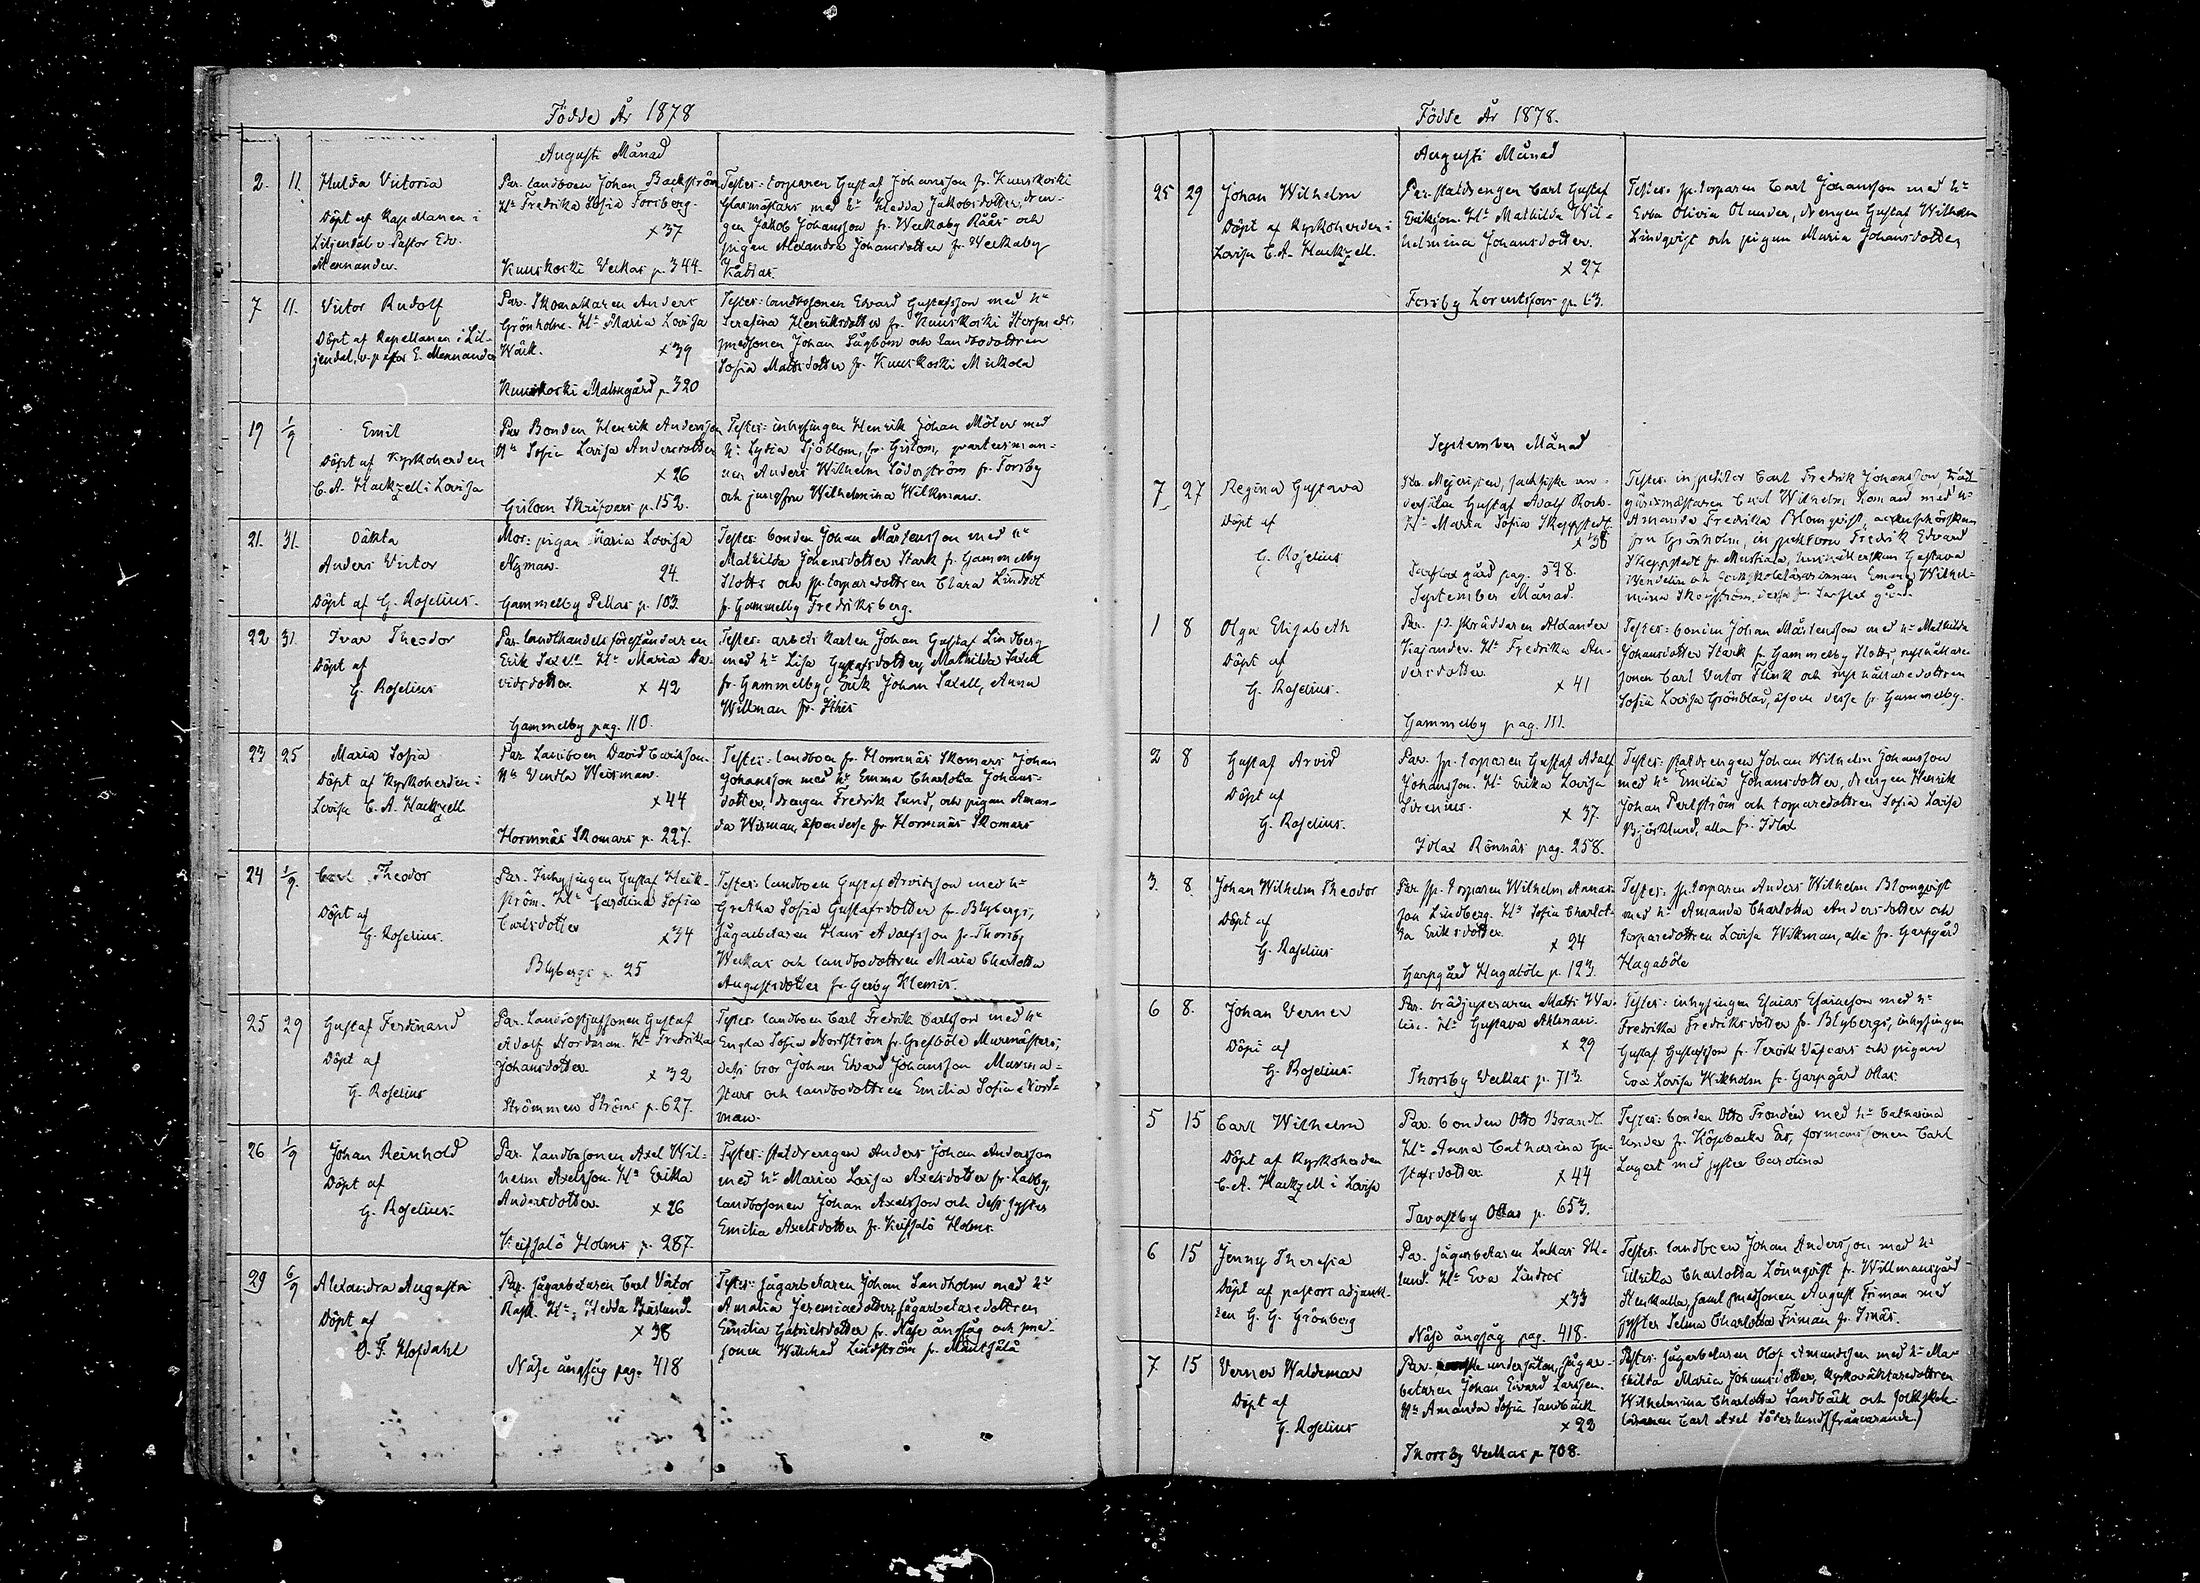 Födde År 1878
Augusti Månad
2. 11. Hulda Victoria
Döpt af Kapellanen i
Liljendal v. Pastor Edv.
Mennander.
Par. landboen Johan Backström
H:u Fredrika Sofia Forsberg.
x 37
Kuuskoski Veckas p. 344.
Testes: torparen Gustaf Johansson fr. Kuuskoski
Glasmästars med h:u Hedda Jakobsdotter, dren-
gen Jakob Johansson fr. Weckaby Råårs och
pigan Alexandra Johansdotter fr. Weckaby
7 11. Victor Rudolf
Döpt af Kapellanen i Lil-
jendal, v. pastor E. Mennander
Par. Skomakaren Anders
Grönholm. H:u Maria Lovisa
Wäck.
x 39
Kuuskoski Malmgård p. 320
Testes: landbosonen Edvard Gustafsson med h:u
Serafina Henriksdotter fr. Kuuskoski
smedsonen Johan Sågbom och landbodottren
Sofia Mattsdotter fr. Kuuskoski Mickola
19 1/9 Emil
Döpt af Kyrkoherden
C. A. Hackzell i Lovisa
Par. Bonden Henrik Andersson
H:u Sofia Lovisa Andersdotter
x 26
Gislom Skrifvars p. 152.
Testes: inhysingen Henrik Johan Möler med
h:u Lydia Sjöblom, fr. Gislom, qvartersman-
nen Anders Wilhelm Söderström fr. Forsby
och jungfru Wilhelmina Wilkman.
21. 31. Oäkta
Anders Victor
Döpt af G. Roselius.
Mor: pigan Maria Lovisa
Agman.
24.
Gammelby Pellas p. 103.
Testes: bonden Johan Mårtensson med h:u
Mathilda Johansdotter Stark fr. Gammelby
Slotts och sp. torparedottren Clara Lindrot
fr. Gammelby Fredriksberg.
22 31. Ivar Theodor
Döpt af
G. Roselius
Par. landthandels föreståndaren
Erik Saxell H:u Maria Da-
vidsdotter.
x 42
Gammelby pag. 110.
Testes: arbets karlen Johan Gustaf Lindberg
med h:u Lisa Gustafsdotter, Mathilda Saxell
fr. Gammelby, Erik Johan Saxell, Anna
Willman fr. Ithis
23 25 Maria Sofia
Döpt af Kyrkoherden i
Lovisa C. A. Hackzell
Par. Landboen David Carlsson.
H:u Vendla Weisman.
x 44
Hormnäs Skomars p. 227.
Testes: landboen fr. Hormnäs Skomars Johan
Johansson med h:u Emma Charlotta Johans-
dotter, drengen Fredrik Lund, och pigan Aman-
da Wisman, äfven desse fr. Hormnäs Skomars
24 1/9. Carl Theodor
Döpt af
G. Roselius.
Par. Inhysingen Gustaf Heik-
ström. H:u Carolina Sofia
Carlsdotter
x 34
Blybergs p. 25
Testes: landboen Gustaf Arvidsson med h:u
Gretha Sofia Gustafsdotter fr. Blybergs,
Sågarbetaren Hans Adolfsson fr. Thorsby
Weckas och landbodottren Maria Charlotta
Augustsdotter fr. Gerby Klemis.
25 29 Gustaf Ferdinand
Döpt af
G. Roselius
Par. Landbostjufsonen Gustaf
Adolf Nordman. H:u Fredrika
Johansdotter.
x 32
Strömmen Ströms p. 627.
Testes: landboen Carl Fredrik Carlsson med h:u
Engla Sofia Nordström fr. Grefböle Murmästars;
dess bror Johan Edvard Johansson Murmä-
stars och landbodottren Emilia Sofia Nord-
man.
26. 1/9 Johan Reinhold
Döpt af
G. Roselius.
Par. Landbosonen Axel Wil-
helm Axelsson. H:u Erika
Andersdotter.
x 26
Keissalö Holms p. 287.
Testes: statdrengen Anders Johan Andersson
med h:u Maria Lovisa Axelsdotter fr. Labby,
landbosonen Johan Axelsson och dess syster
Emilia Axelsdotter fr. Keissalö Holms.
29 6/9 Alexandra Augusta
Döpt af
O. F. Hofdahl
Par. Sågarbetaren Carl Victor
Rask. H:u Hedda Bärlund.
x 38
Näse ångsåg pag. 418
Testes: Sågarbetaren Johan Sandholm med h:u
Amalia Jeremiædotter, sågarbetaredottren
Emilia Gabrielsdotter fr. Näse ångsåg och smed-
sonen Willehad Lindström fr.
Födde År 1878.
Augusti Månad
25 29 Johan Wilhelm
Döpt af Kyrkoherden i
Lovisa C. A. Hackzell.
Par. statdrengen Carl Gustaf
Eriksson. H:u Mathilda Wil-
helmina Johansdotter.
x 27
Forsby Lorentsfors p. 63.
Testes: sp. torparen Carl Johansson med h:u
Edla Olivia Olander, drengen Gustaf Wilhelm
Lindqvist och pigan Maria Johansdotter
September Månad
7 27 Regina Gustava
Döpt af
G. Roselius
Par. Mejeristen, sachsiske un-
dersåten Gustaf Adolf Rock.
H:u Maria Sofia Skeppstedt.
x 38
Sarflax gård pag. 598.
Testes: inspektor Carl Fredrik Johansson, träd-
gårdsmästaren Carl Wilhelm Homan med h:u
Amanda Fredrika Blomqvist,
fru Grönholm, inspektoren Fredrik Edvard
Skeppstedt fr. Mustiala, hushållerskan Gustava
Wendelin och folkskolelärarinnan Emma Wilhel-
mina Skogström, desse fr. Sarflax gård.
September Månad.
1 8 Olga Elisabeth
Döpt af
G. Roselius.
Par. sp. skräddaren Alexander
Kajander. H:u Fredrika An-
dersdotter.
x 41
Gammelby pag. 111.
Testes: bonden Johan Mårtensson med h:u Mathilda
Johansdotter Stark fr. Gammelby Slotts, rusthållare-
sonen Carl Victor Flink och rusthållaredottren
Sofia Lovisa Grönblad, äfven desse fr. Gammelby.
2 8 Gustaf Arvid
Döpt af
G. Roselius.
Par. sp. torparen Gustaf Adolf
Johansson. H:u Erika Lovisa
Sirenius.
x 37.
Idlax Rönnäs pag. 258.
Testes: statdrengen Johan Wilhelm Johansson
med h:u Emilia Johansdotter, drengen Henrik
Johan Perlström och torparedottren Sofia Lovisa
Björklund, alla fr. Idlax
3. 8. Johan Wilhelm Theodor
Döpt af
G. Roselius
Par. sp. torparen Wilhelm Annas-
son Lindberg. H:u Sofia Charlot-
ta Eriksdotter.
x 24
Garpgård Hagaböle p. 123.
Testes: sp. torparen Anders Wilhelm Blomqvist
med h:u Amanda Charlotta Andersdotter och
torparedottren Lovisa Wilkman, alla fr. Garpgård
Hagaböle
6 8. Johan Verner
Döpt af
G. Roselius.
Par. brädjusteraren Matts Wa-
lin. H:u Gustava Ahlman.
x 29
Thorsby Veckas p. 713.
Testes: inhysingen Esaias Esaiasson med h:u
Fredrika Fredriksdotter fr. Blybergs, inhysingen
Gustaf Gustafsson fr. Tervik Väfvars och pigan
Eva Lovisa Wikholm fr. Garpgård Ollas.
5 15 Carl Wilhelm
Döpt af Kyrkoherden
C. A. Hackzell i Lovisa
Par. bonden Otto Brandt.
H:u Anna Catharina Gu-
stafsdotter.
x 44
Tavastby Ollas p. 653.
Testes: bonden Otto Frondén med h:u Catharina
Under fr. Köpbacka Ers, formanssonen Carl
Lagert med syster Carolina
6 15 Jenny Theresia
Döpt af pastors adjunk-
ten G. G. Grönberg
Par. sågarbetaren Lukas Ek-
lund. H:u Eva Lindroos
x 33
Näse ångsåg pag. 418.
Testes: landboen Johan Andersson med h:u
Ulrika Charlotta Lönnqvist fr. Willmansgård
Stenkulla, samt smedsonen August Friman med
syster Selma Charlotta Friman fr. Isnäs.
7 15 Verner Waldemar
Döpt af
G. Roselius
Par. undersåten, sågar-
betaren Johan Edvard Larssen.
H:u Amanda Sofia Sandbäck
x 22
Thorsby Veckas p. 708.
Testes: Sågarbetaren Olof Amundsen med h:u Ma-
thilda Maria Johansdotter, kyrkoväktaredottren
Wilhelmina Charlotta Sandbäck och folkskole-
läraren Carl Axel Söderlund (frånvarande)